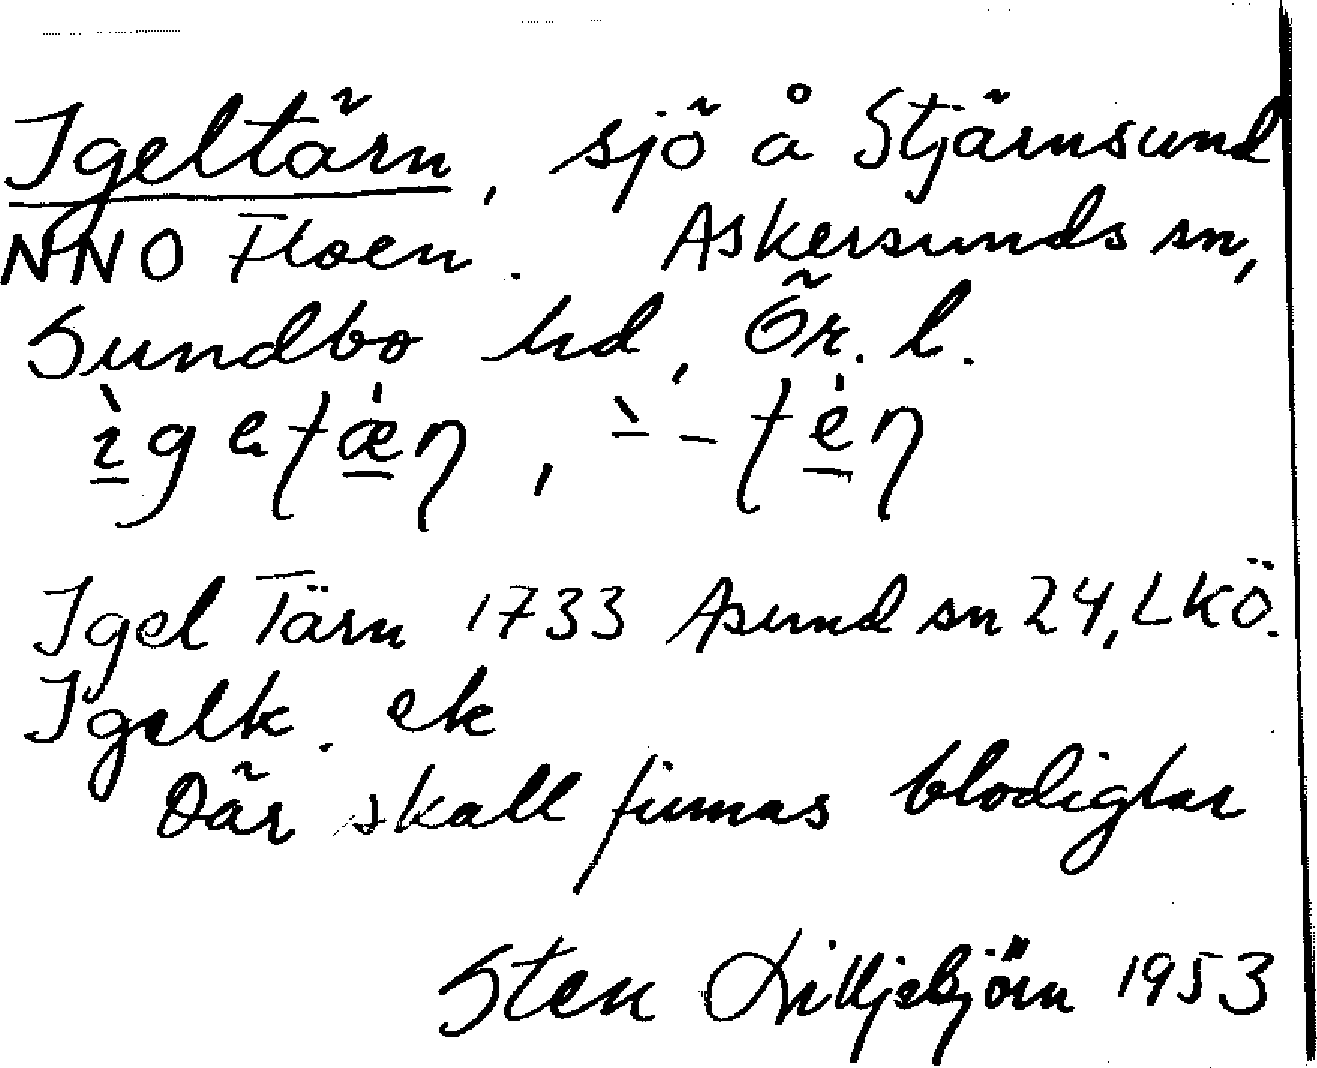 Igeltärn, sjö å Stjärnsund
NNO Floen. Askersunds sn,
Sundbo hd, Ör. l.
Igel Tärn 1733 Asund sn 24, LKÖ.
Igelk. ek
Där skall finnas blodiglar
Sten Lilljebjörn 1953